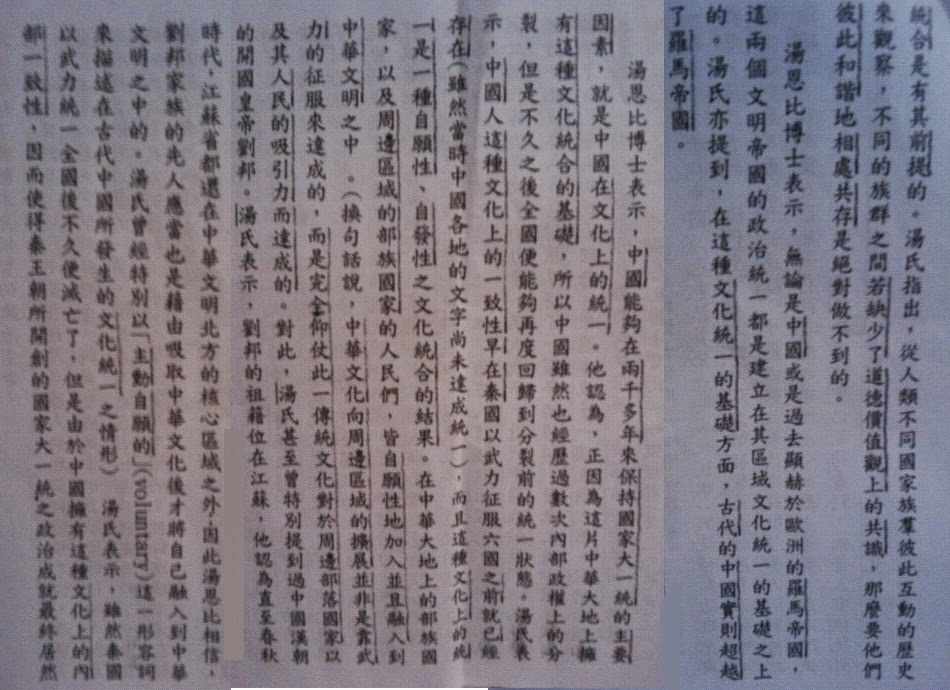 統合是有其前提的。湯氏指出，從人類不同國家族羣彼此互動的歷史
來觀察，不同的族群之間若缺少了道德價值觀上的共識，那麼要他們
彼此和諧地相處共存是絕對做不到的。
湯恩比博士表示，無論是中國或是過去顯赫於歐洲的羅馬帝國，
這兩個文明帝國的政治統一都是建立在其區域文化統一的基礎之上
的。湯氏亦提到，在這種文化統一的基礎方面，古代的中國實則超越
了羅馬帝國。
湯恩比博士表示，中國能夠在兩千多年來保持國家大一統的主要
因素，就是中國在文化上的統一。他認為，正因為這片中華大地上擁
有這種文化統合的基礎，所以中國雖然也經歷過數次內部政權上的分
裂，但是不久之後全國便能夠再度回歸到分裂前的統一狀態。湯氏表
示，中國人這種文化上的一致性早在秦國以武力征服六國之前就已經
存在（雖然當時中國各地的文字尚未達成統一），而且這種文化上的統
一是一種自願性、自發性之文化統合的結果。在中華大地上的部族國
家，以及周邊區域的部族國家的人民們，皆自願性地加入並且融入到
中華文明之中。（換句話說，中華文化向周邊區域的擴展並非是靠武
力的征服來達成的，而是完全仰仗此一傳統文化對於周邊部落國家以
及其人民的吸引力而達成的。對此，湯氏甚至曾特別提到過中國漢朝
的開國皇帝劉邦。湯氏表示，劉邦的祖籍位在江蘇，他認為直至春秋
時代，江蘇省都還在中華文明北方的核心區域之外，因此湯恩比相信，
劉邦家族的先人應當也是藉由吸取中華文化後才將自己融入到中華
文明之中的。湯氏曾經特別以「主動自願的」（voluntary）這一形容詞
來描述在古代中國所發生的文化統一之情形） 湯氏表示，雖然秦國
以武力統一全國後不久便滅亡了，但是由於中國擁有這種文化上的內
部一致性，因而使得秦王朝所開創的國家大一統之政治成就最終居然